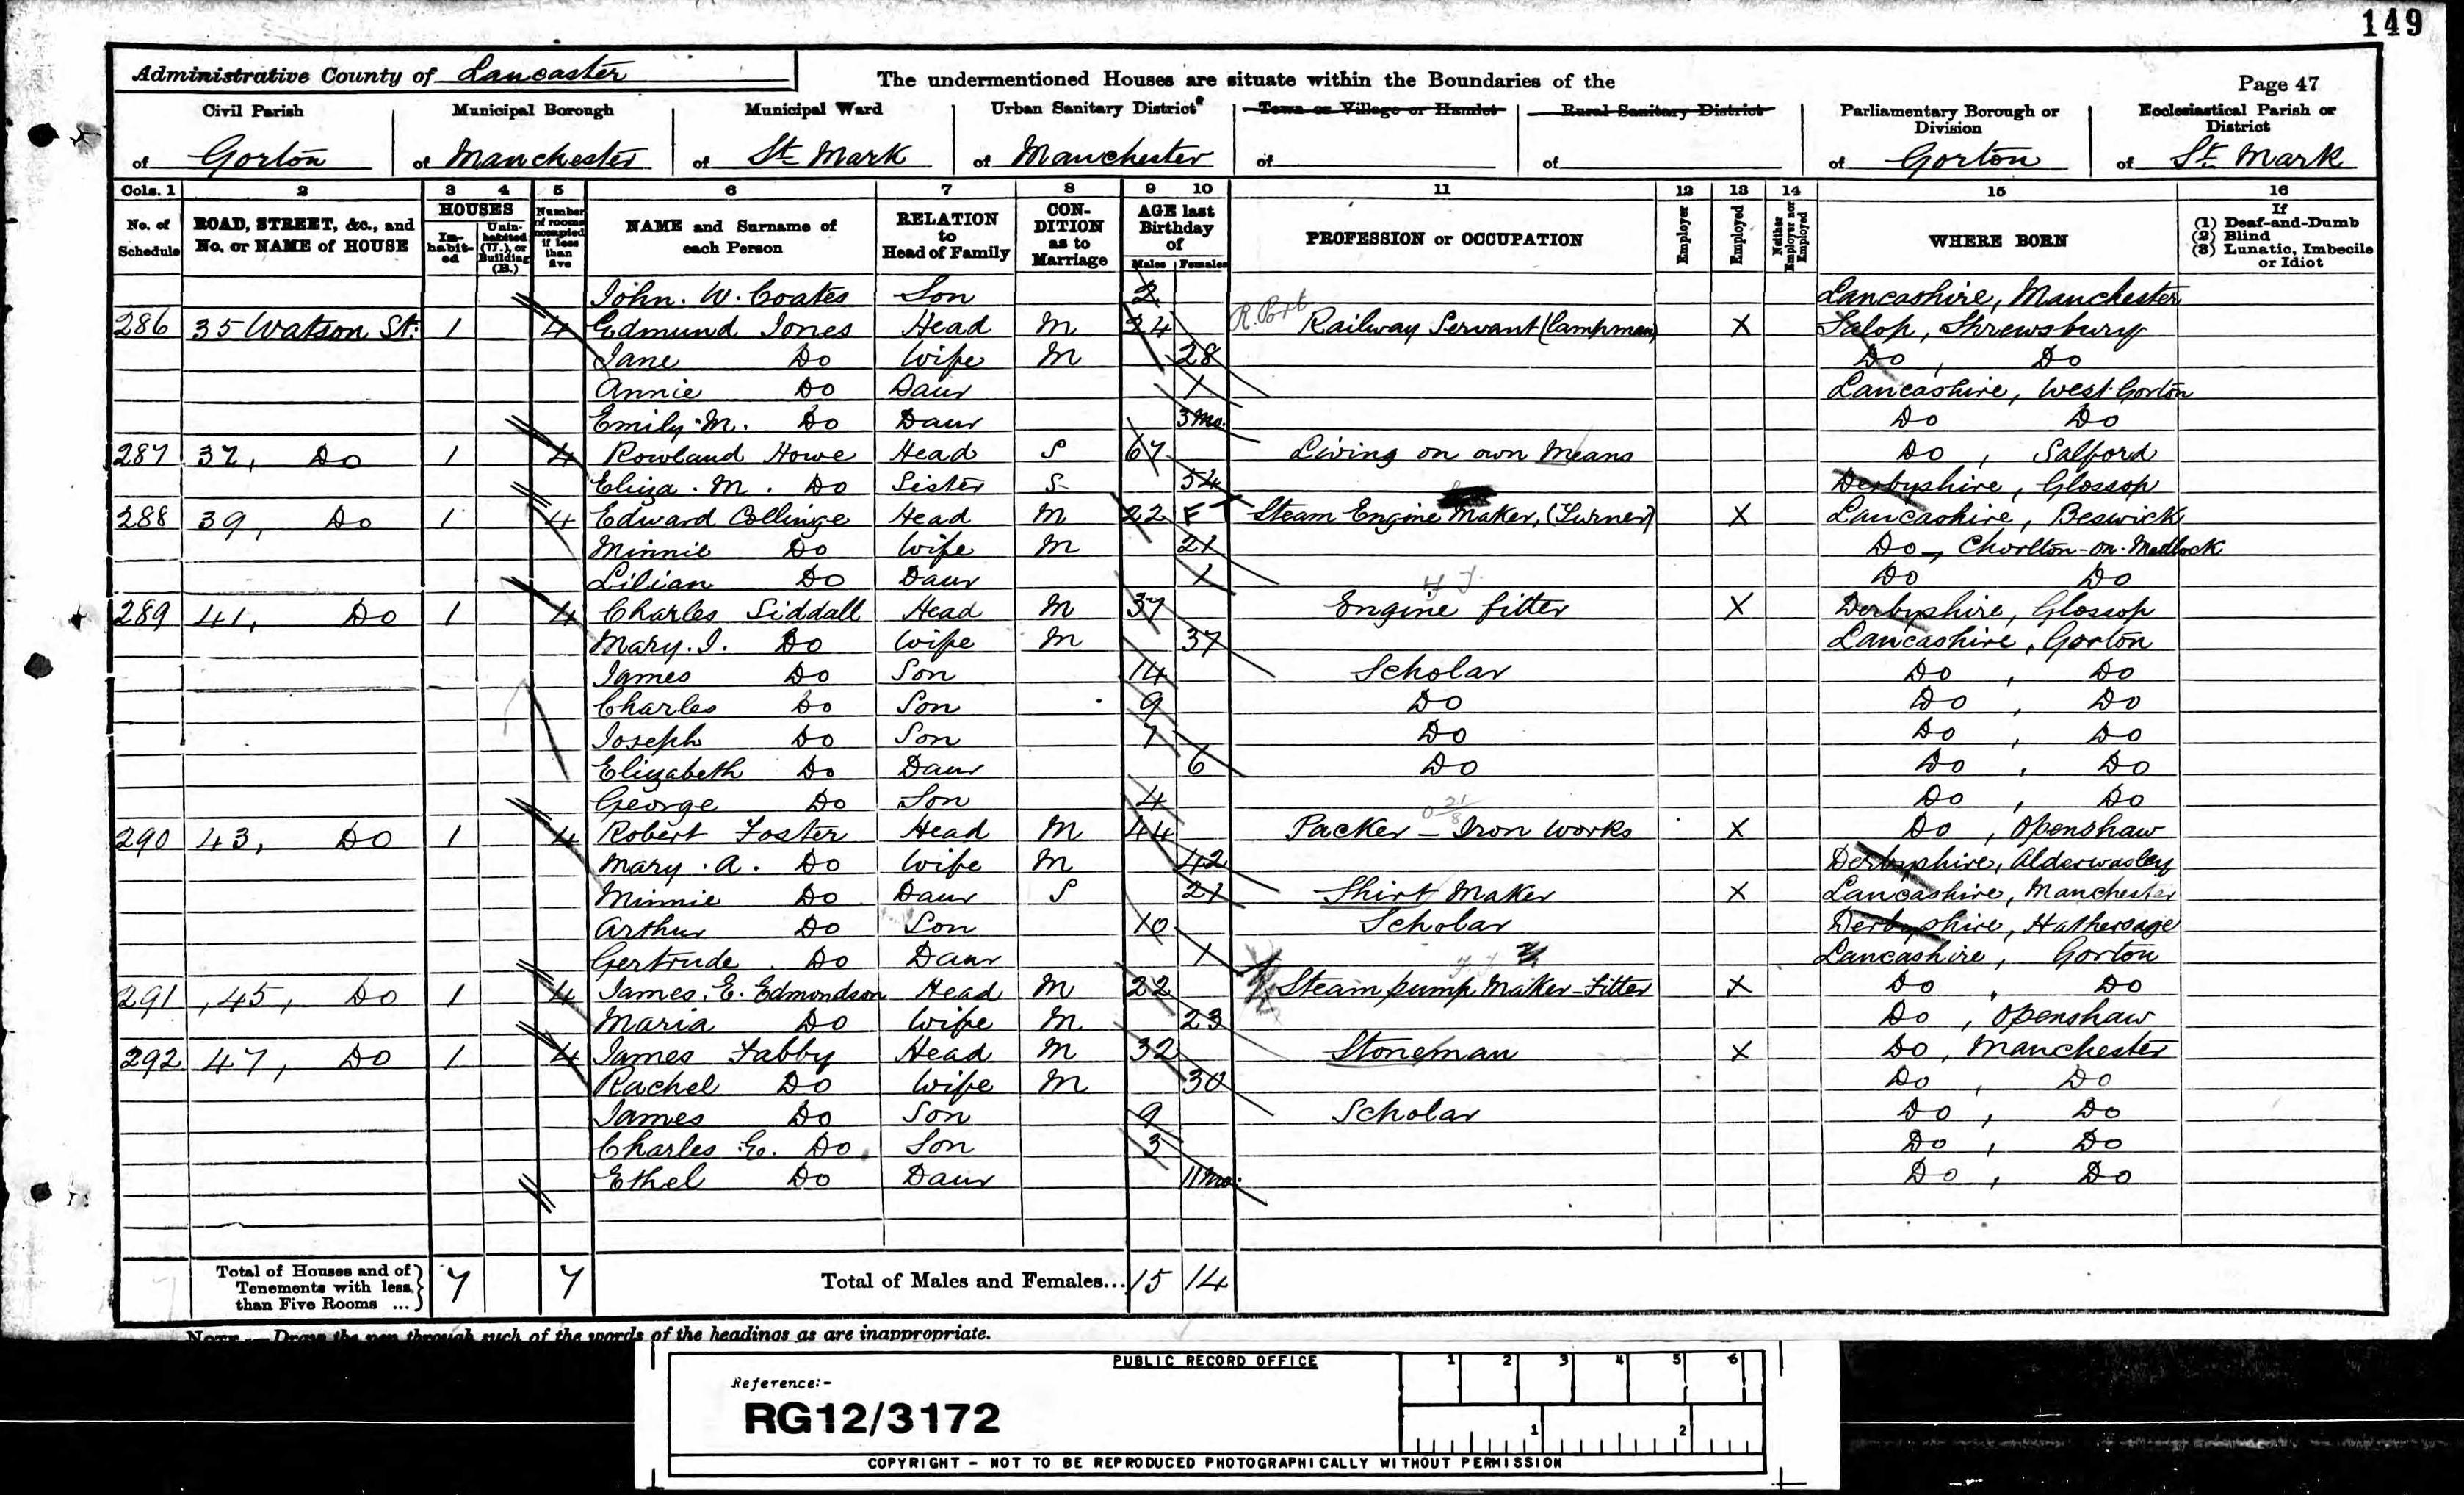 149
Administrative County of Lancaster
The undermentioned Houses are situate within the Boundaries of the
Page 47
Civil Parish Municipal Borough Municipal Ward Urban Sanitary District* Town or Village or Hamlet Rural Sanitary District Parliamentary Borough or Division Ecclesiastical Parish or District
of Gorton of Manchester of St Mark of Manchester of of of Gorton of St. Mark
Cols. 1 2 3 4 5 6 7 8 9 10 11 12 13 14 15 16
No. of Schedule ROAD, STREET, &c., and No. or NAME of HOUSE HOUSES Inhabited Uninhabited (U.), or Building (B.) Number of rooms occupied if less than five NAME and Surname of each Person RELATION to Head of Family CONDITION as to Marriage AGE last Birthday of Males Females PROFESSION or OCCUPATION Employer Employed Neither Employer nor Employed WHERE BORN If (1) Deaf-and-Dumb (2) Blind (3) Lunatic, Imbecile or Idiot
John. W. Coates Son 2 Lancashire, Manchester
286 35 Watson St: 1 4 Edmund Jones Head M 24 R. Port Railway Servant (Lampman) X Salop, Shrewsbury
Jane Do Wife M 28 Do , Do
Annie Do Daur 1 Lancashire, West Gorton
Emily. M. Do Daur 3 Mo. Do Do
287 37, Do 1 4 Rowland Howe Head S 67 Living on own Means Do , Salford
Eliza. M. Do Sister S 54 Derbyshire, Glossop
288 39, Do 1 4 Edward Collinge Head M 22 F T Steam Engine Maker, (Turner) X Lancashire, Beswick
Minnie Do Wife M 21 Do, Chorlton-on-Medlock
Lilian Do Daur 1 Do Do
289 41, Do 1 4 Charles Siddall Head M 37 Engine fitter X Derbyshire, Glossop
Mary. J. Do Wife M 37 Lancashire, Gorton
James Do Son 14 Scholar Do , Do
Charles Do Son 9 Do Do , Do
Joseph Do Son 7 Do Do , Do
Elizabeth Do Daur 6 Do Do , Do
George Do Son 4 Do , Do
290 43, Do 1 4 Robert Foster Head M 44 Packer - Iron Works X Do , Openshaw
Mary. A. Do Wife M 42 Derbyshire, Alderwasley
Minnie Do Daur S 21 Shirt Maker X Lancashire, Manchester
Arthur Do Son 10 Scholar Derbyshire, Hathersage
Gertrude . Do Daur 1 Lancashire, Gorton
291 , 45, Do 1 4 James. E. Edmondson Head M 22 Steam pump Maker-Fitter X Do , Do
Maria Do Wife M 23 Do , Openshaw
292 47, Do 1 4 James Fabby Head M 32 Stoneman X Do, Manchester
Rachel Do Wife M 30 Do , Do
James Do Son 9 Scholar Do , Do
Charles E. Do Son 3 Do , Do
Ethel Do Daur 11 Mo. Do , Do
Total of Houses and of Tenements with less than Five Rooms ... 7 7 Total of Males and Females... 15 14
NOTE.—Draw the pen through such of the words of the headings as are inappropriate.
PUBLIC RECORD OFFICE
1 2 3 4 5 6
Reference:-
RG12/3172
1 2
COPYRIGHT - NOT TO BE REPRODUCED PHOTOGRAPHICALLY WITHOUT PERMISSION